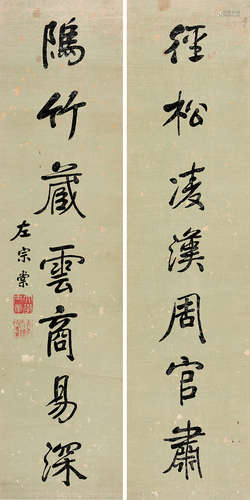 徑松凌漢周官肅
隝竹藏雲商易深
左宗棠